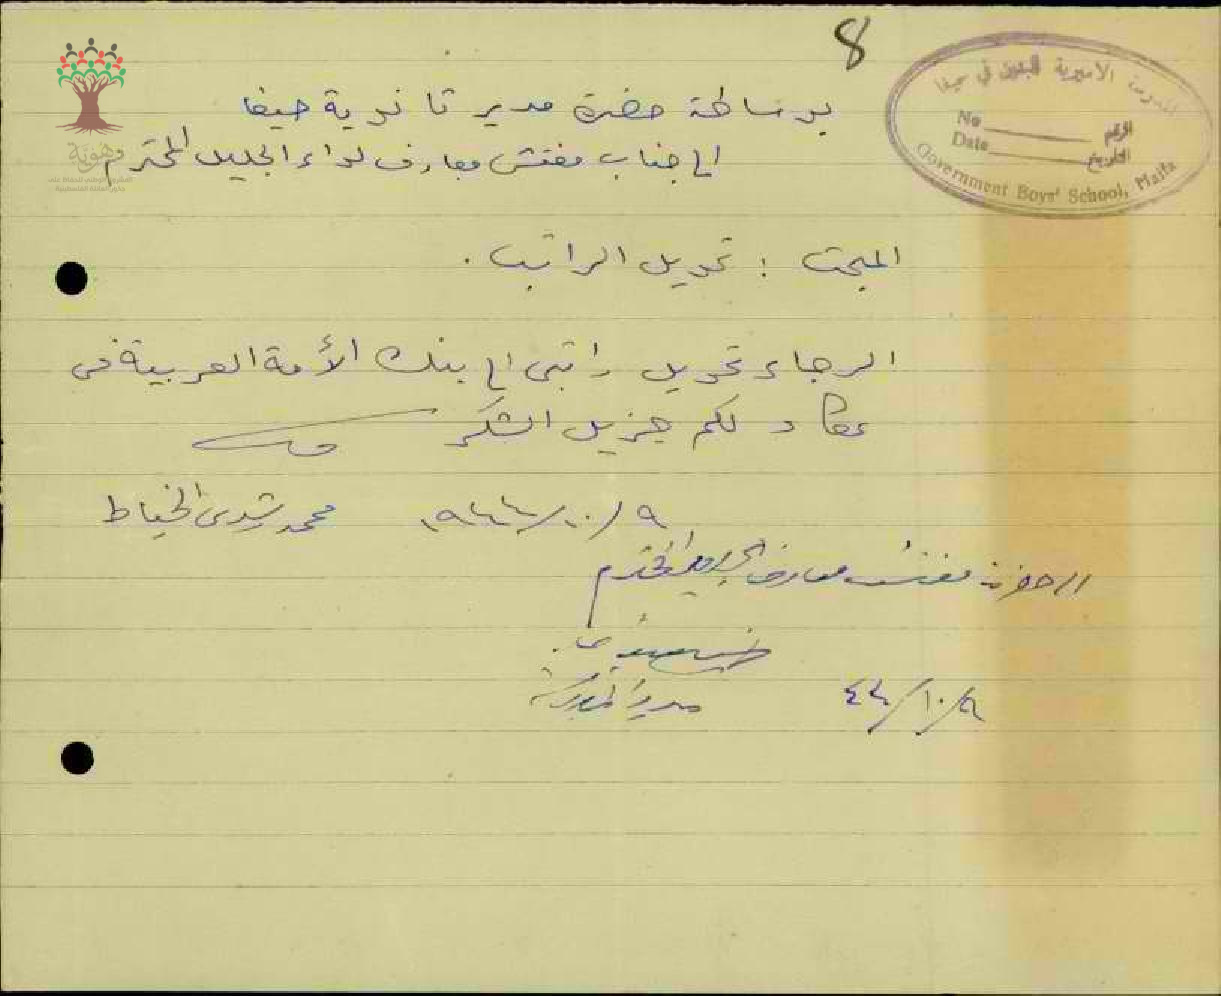 8
المدرسة الاميرية للبنين في حيفا
No الرقم
Date التاريخ
Government Boys' School, Haifa
هوية
بوساطة حضرة مدير ثانوية حيفا
الى جناب مفتش معارف لواء الجليل المحترم
المبحث : تحويل الراتب .
الرجاء تحويل راتبي الى بنك الأمة العربية في
عكا و لكم جزيل الشكر
٩/١٠/١٩٤٤ محمد رشدي الخياط
الى حضرة مفتش معارف الجليل المحترم
مدير المدرسة
٩/١٠/٤٤